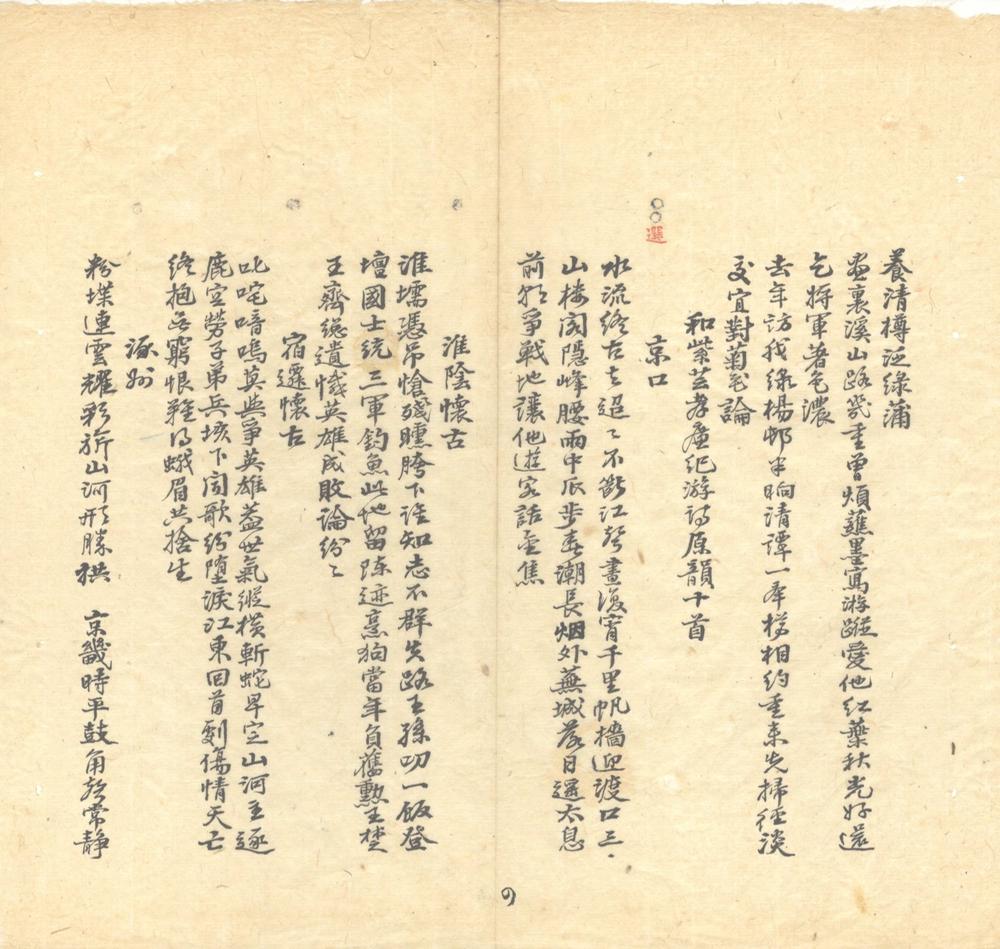 養清樽泛綠蒲
畫裏溪山路幾重曾煩蘸墨寫游蹤愛他紅葉秋光好還
乞將軍著色濃
去年訪我綠楊邨半晌清譚一奉樽相約重來先掃徑淡
交宜對菊花論
和紫芸孝廉紀游詩原韻十首
選
京口
水流終古去迢々不斷江聲晝復宵千里帆檣迎渡口三
山樓閣隱峰腰雨中瓜步春潮長烟外蕪城落日遙太息
前朝爭戰地讓他遊客話金焦
淮陰懷古
淮壖憑弔愴殘曛胯下誰知志不群失路王孫叨一飯登
壇國士統三軍釣魚此地留陳迹烹狗當年負舊勳王楚
王齊總遺憾英雄成敗論紛々
宿遷懷古
叱咤喑嗚莫與爭英雄蓋世氣縱橫斬蛇早定山河主逐
鹿空勞子弟兵垓下聞歌紛墮淚江東回首劇傷情天亡
終抱無窮恨難得蛾眉共捨生
涿州
粉堞連雲耀彩旂山河形勝拱 京畿時平鼓角聲常静